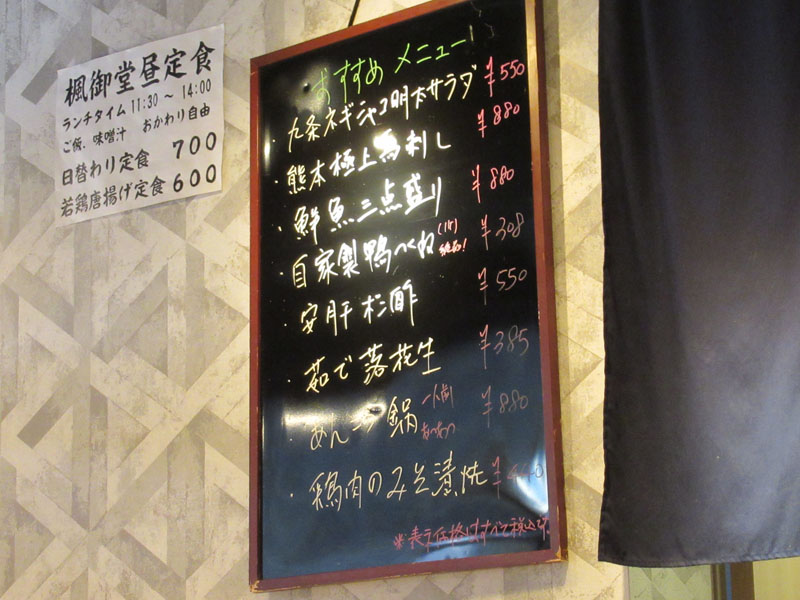 楓御堂昼定食
ランチタイム 11:30 ~ 14:00
ご飯、味噌汁 おかわり自由
日替わり定食 700
若鶏唐揚げ定食 600
おすすめ メニュー!
九条ネギジャコ明太サラダ ¥550
・熊本極上馬刺し ¥880
・鮮魚三点盛り ¥880
・自家製鴨つくね (1本) ¥308
・安肝ポン酢 ¥550
・茹で落花生 ¥385
・あんこう鍋 一人前 ¥880
・鶏肉のみそ漬焼 ¥440
※表示価格はすべて税込です